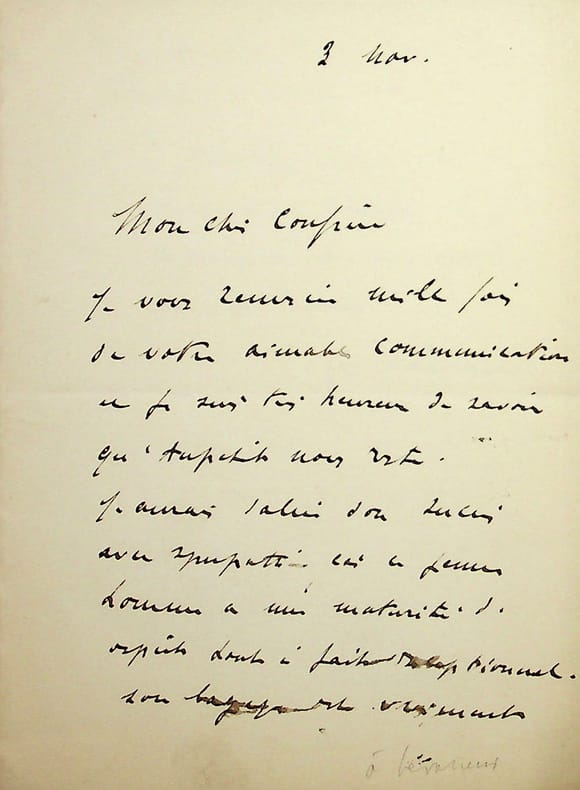 3 nov.
Mon cher Confrère
Je vous remercie mille fois
de votre aimable communication
et je suis très heureux de savoir
qu'Aupetit nous reste.
J'aurais salué son succès
avec sympathie car ce jeune
homme a une maturité d'
esprit tout à fait exceptionnel.
son bagage est vraiment
à